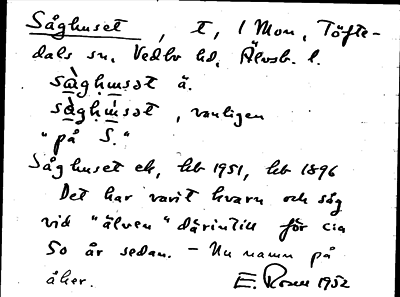 Såghuset, t, 1 Mon, Töfte-
dals sn, Vedbo hd, Älvsb. l.
sàghu̇sət ä.
sàghu̇sət, vanligen
"på S."
Såghuset ek, hb 1951, hb 1896
Det har varit kvarn och såg
vid "älven" därintill för c:a
50 år sedan. - Nu namn på
åker. E. Rosen 1952